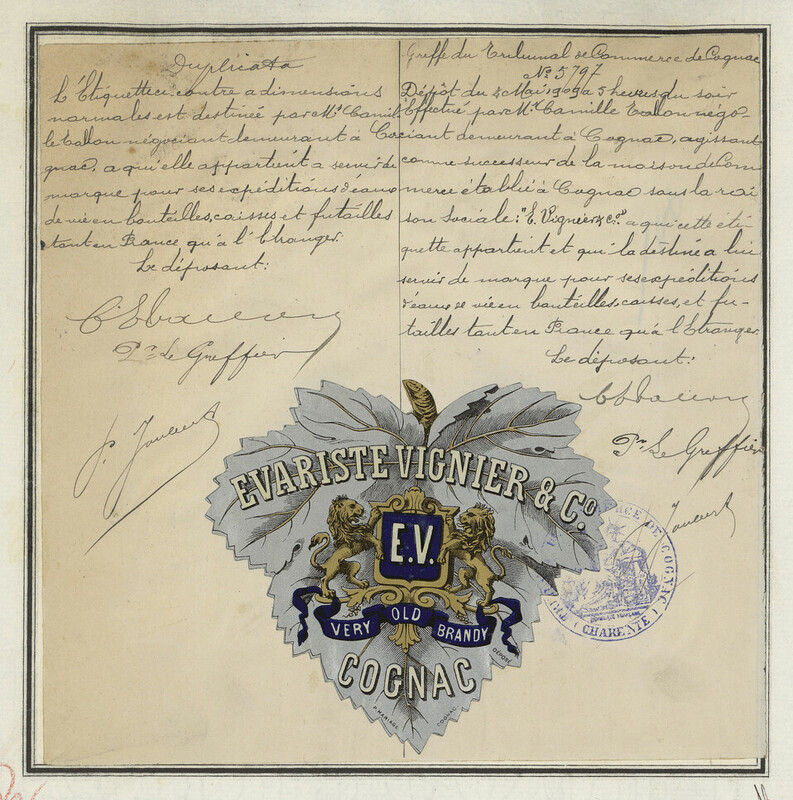 Duplicata
L'Etiquette ci contre a dimensions
normales est destinée par Mr Camil-
le Eallon négociant demeurant à Co-
gnac, a qu'elle appartient a servir de
marque pour ses expéditions d'eaux
de vie en bouteilles, caisses et futailles
tant en France qu'à l'Etranger.
Le déposant:
Pr Le Greffier
Greffe du Tribunal de Commerce de Cognac
No 5797
Dépôt du Mai à 5 heures du soir
Effectué par Mr Camille Eallon négo-
ciant demeurant à Cognac, agissant
comme successeur de la maison de Com-
merce établie à Cognac sous la rai
son Sociale: "E. Vignier & Co" a qui cette éti-
quette appartient et qui la destine a lui
servir de marque pour ses expéditions
d'eaux de vie en bouteilles, caisses, et fu-
tailles tant en France qu'à l'Etranger.
Le déposant:
Pr Le Greffier
EVARISTE VIGNIER & Co
E.V.
VERY OLD BRANDY
COGNAC
DÉPOSÉ
COGNAC
DE COGNAC
(CHARENTE)